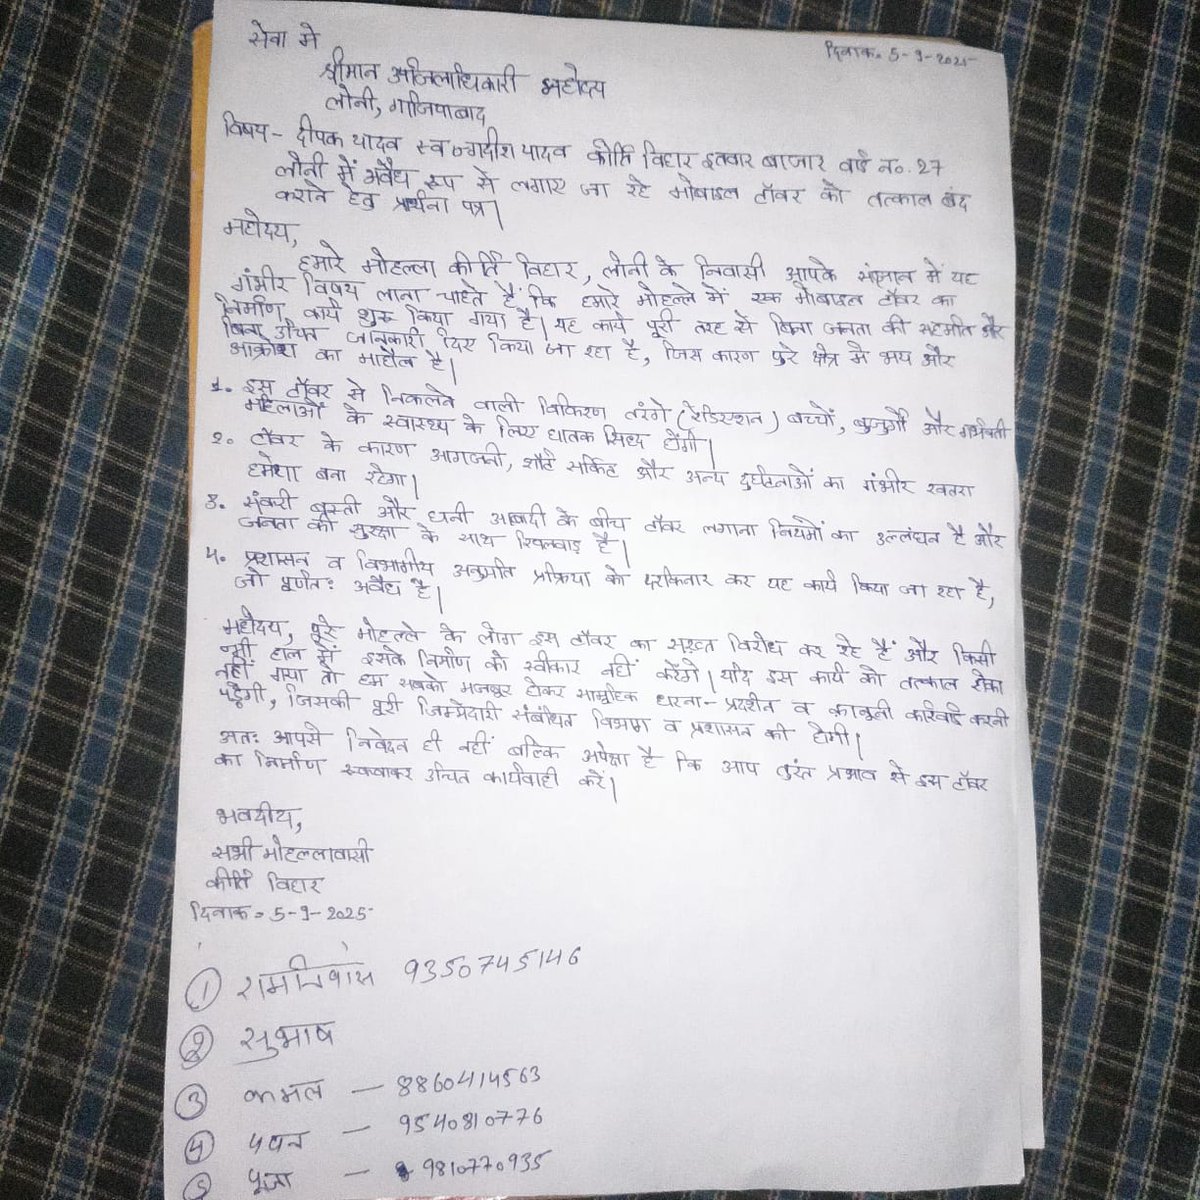 सेवा मे
दिनाक = 5-9-2025
श्रीमान उपजिलाधिकारी महोदय
लोनी, गाजियाबाद
विषय - दीपक यादव स्व जगदीश यादव कीर्ति विहार इतवार बाजार वार्ड no. 27
लोनी में अवैध रूप से लगाए जा रहे मोबाइल टॉवर को तत्काल बंद
कराने हेतु प्रार्थना पत्र।
महोदय,
हमारे मोहल्ला कीर्ति विहार, लोनी के निवासी आपके संज्ञान में यह
गंभीर विषय लाना चाहते हैं कि हमारे मोहल्ले में एक मोबाइल टॉवर का
निर्माण कार्य शुरू किया गया है। यह कार्य पूरी तरह से बिना जनता की सहमति और
बिना उचित जानकारी दिए किया जा रहा है, जिस कारण पुरे क्षेत्र मे भय और
आक्रोश का माहौल है।
1. इस टॉवर से निकलने वाली विकिरण तरंगे (रेडिएशन) बच्चों, बुजुर्गों और गर्भवती
महिलाओं के स्वास्थ्य के लिए घातक सिध्द होंगी।
2. टॉवर के कारण आगजनी, शॉर्ट सर्किट और अन्य दुर्घटनाओं का गंभीर खतरा
हमेशा बना रहेगा।
3. संकरी बस्ती और घनी आबादी के बीच टॉवर लगाना नियमों का उल्लंघन है और
जनता की सुरक्षा के साथ खिलवाड़ है।
4. प्रशासन व विभागीय अनुमति प्रक्रिया को दरकिनार कर यह कार्य किया जा रहा है,
जो पूर्णत: अवैध है।
महोदय, पूरे मोहल्ले के लोग इस टॉवर का सख्त विरोध कर रहे हैं और किसी
भी हाल में इसके निर्माण को स्वीकार नहीं करेंगे। यदि इस कार्य को तत्काल रोका
नहीं गया तो हम सबको मजबूर होकर सामूहिक धरना-प्रदर्शन व कानूनी कार्रवाई करनी
पड़ेगी, जिसकी पूरी जिम्मेदारी संबंधित विभाग व प्रशासन की होगी।
अतः आपसे निवेदन ही नहीं बल्कि अपेक्षा है कि आप तुरंत प्रभाव से इस टॉवर
का निर्माण रूकवाकर उचित कार्यवाही करें।
भवदीय,
सभी मोहल्लावासी
कीर्ति विहार
दिनाक = 5-9-2025
1 रामनिवास 9350745146
2 सुभाष
3 कमल - 8860414563
4 पवन - 9540810776
5 पूजा - 9810770935